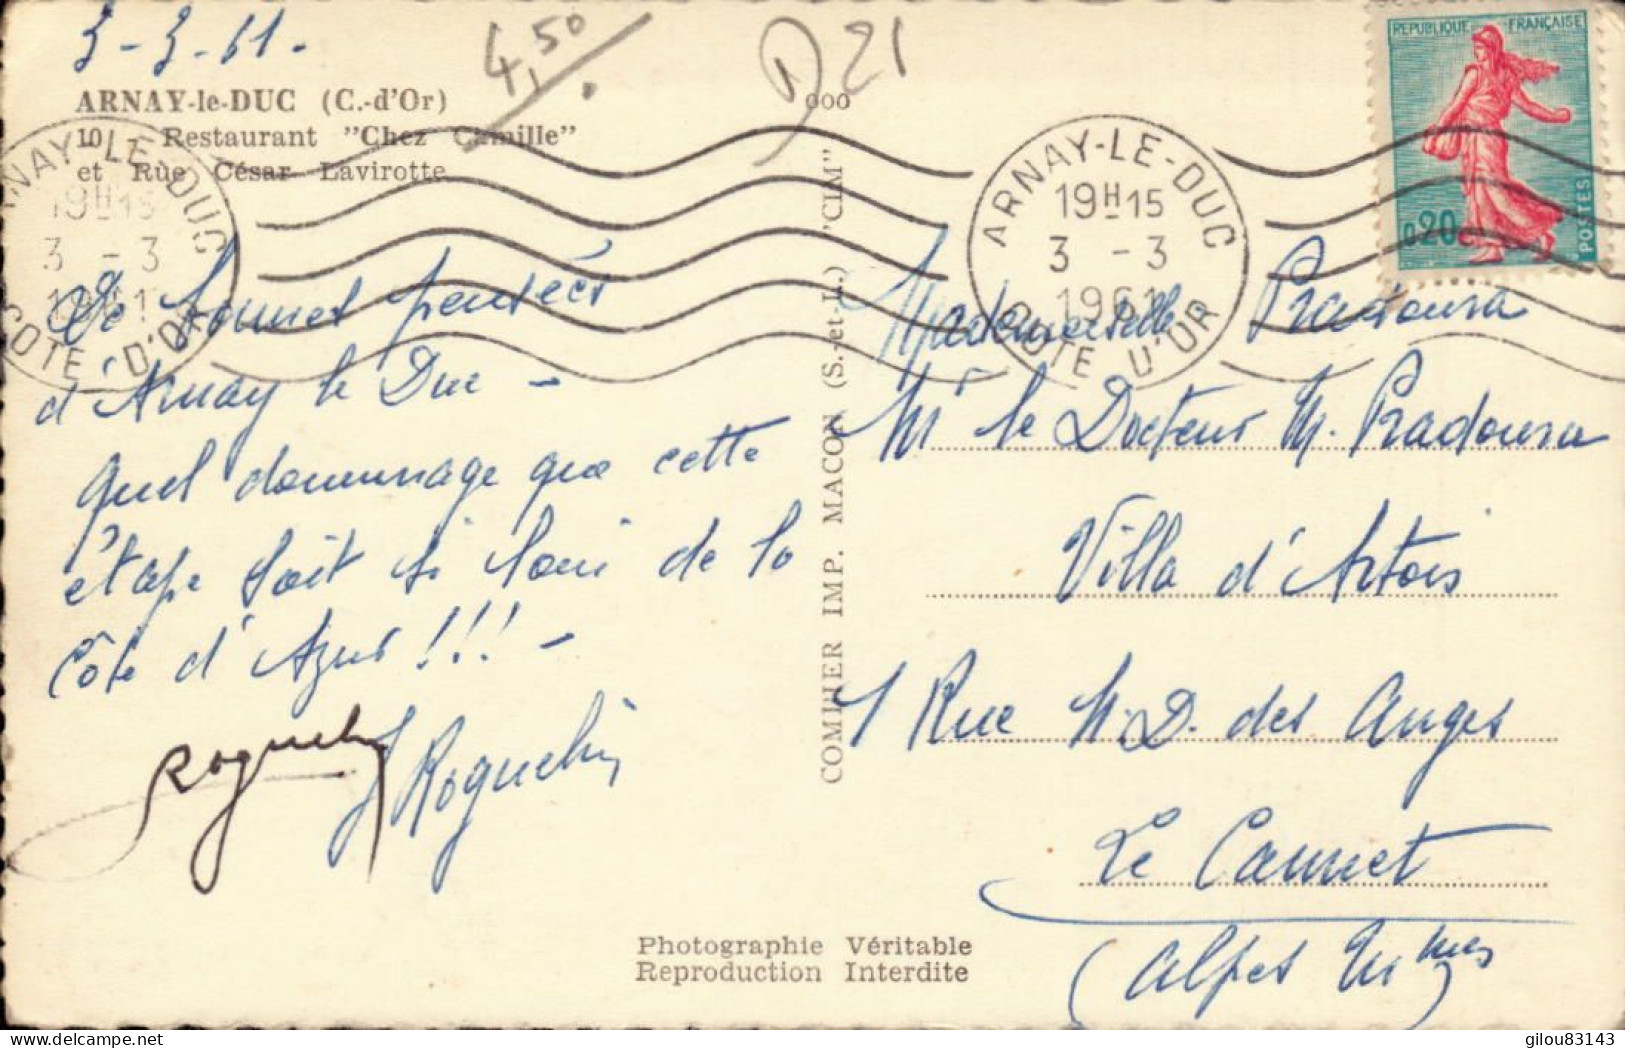 3-3-61.
4,50
D 21
ARNAY-le-DUC (C.-d'Or)
10 Restaurant "Chez Camille"
et Rue César Lavirotte
000
ARNAY-LE-DUC
19H15
3 - 3
1961
COTE D'OR
ARNAY-LE-DUC
19H15
3 - 3
1961
COTE D'OR
REPUBLIQUE FRANÇAISE
0.20
POSTES
pensées
d'Arnay le Duc -
quel dommage que cette
étape soit si loin de la
Côte d'Azur!!! -
Roguehi
COMBIER IMP. MACON (S.-et-L.) "CIM"
Mademoiselle Pradoura
Mr le Docteur M. Pradoura
Villa d'Artois
1 Rue N.D. des Anges
Le Cannet
(Alpes Mmes)
Photographie Véritable
Reproduction Interdite
gilou83143